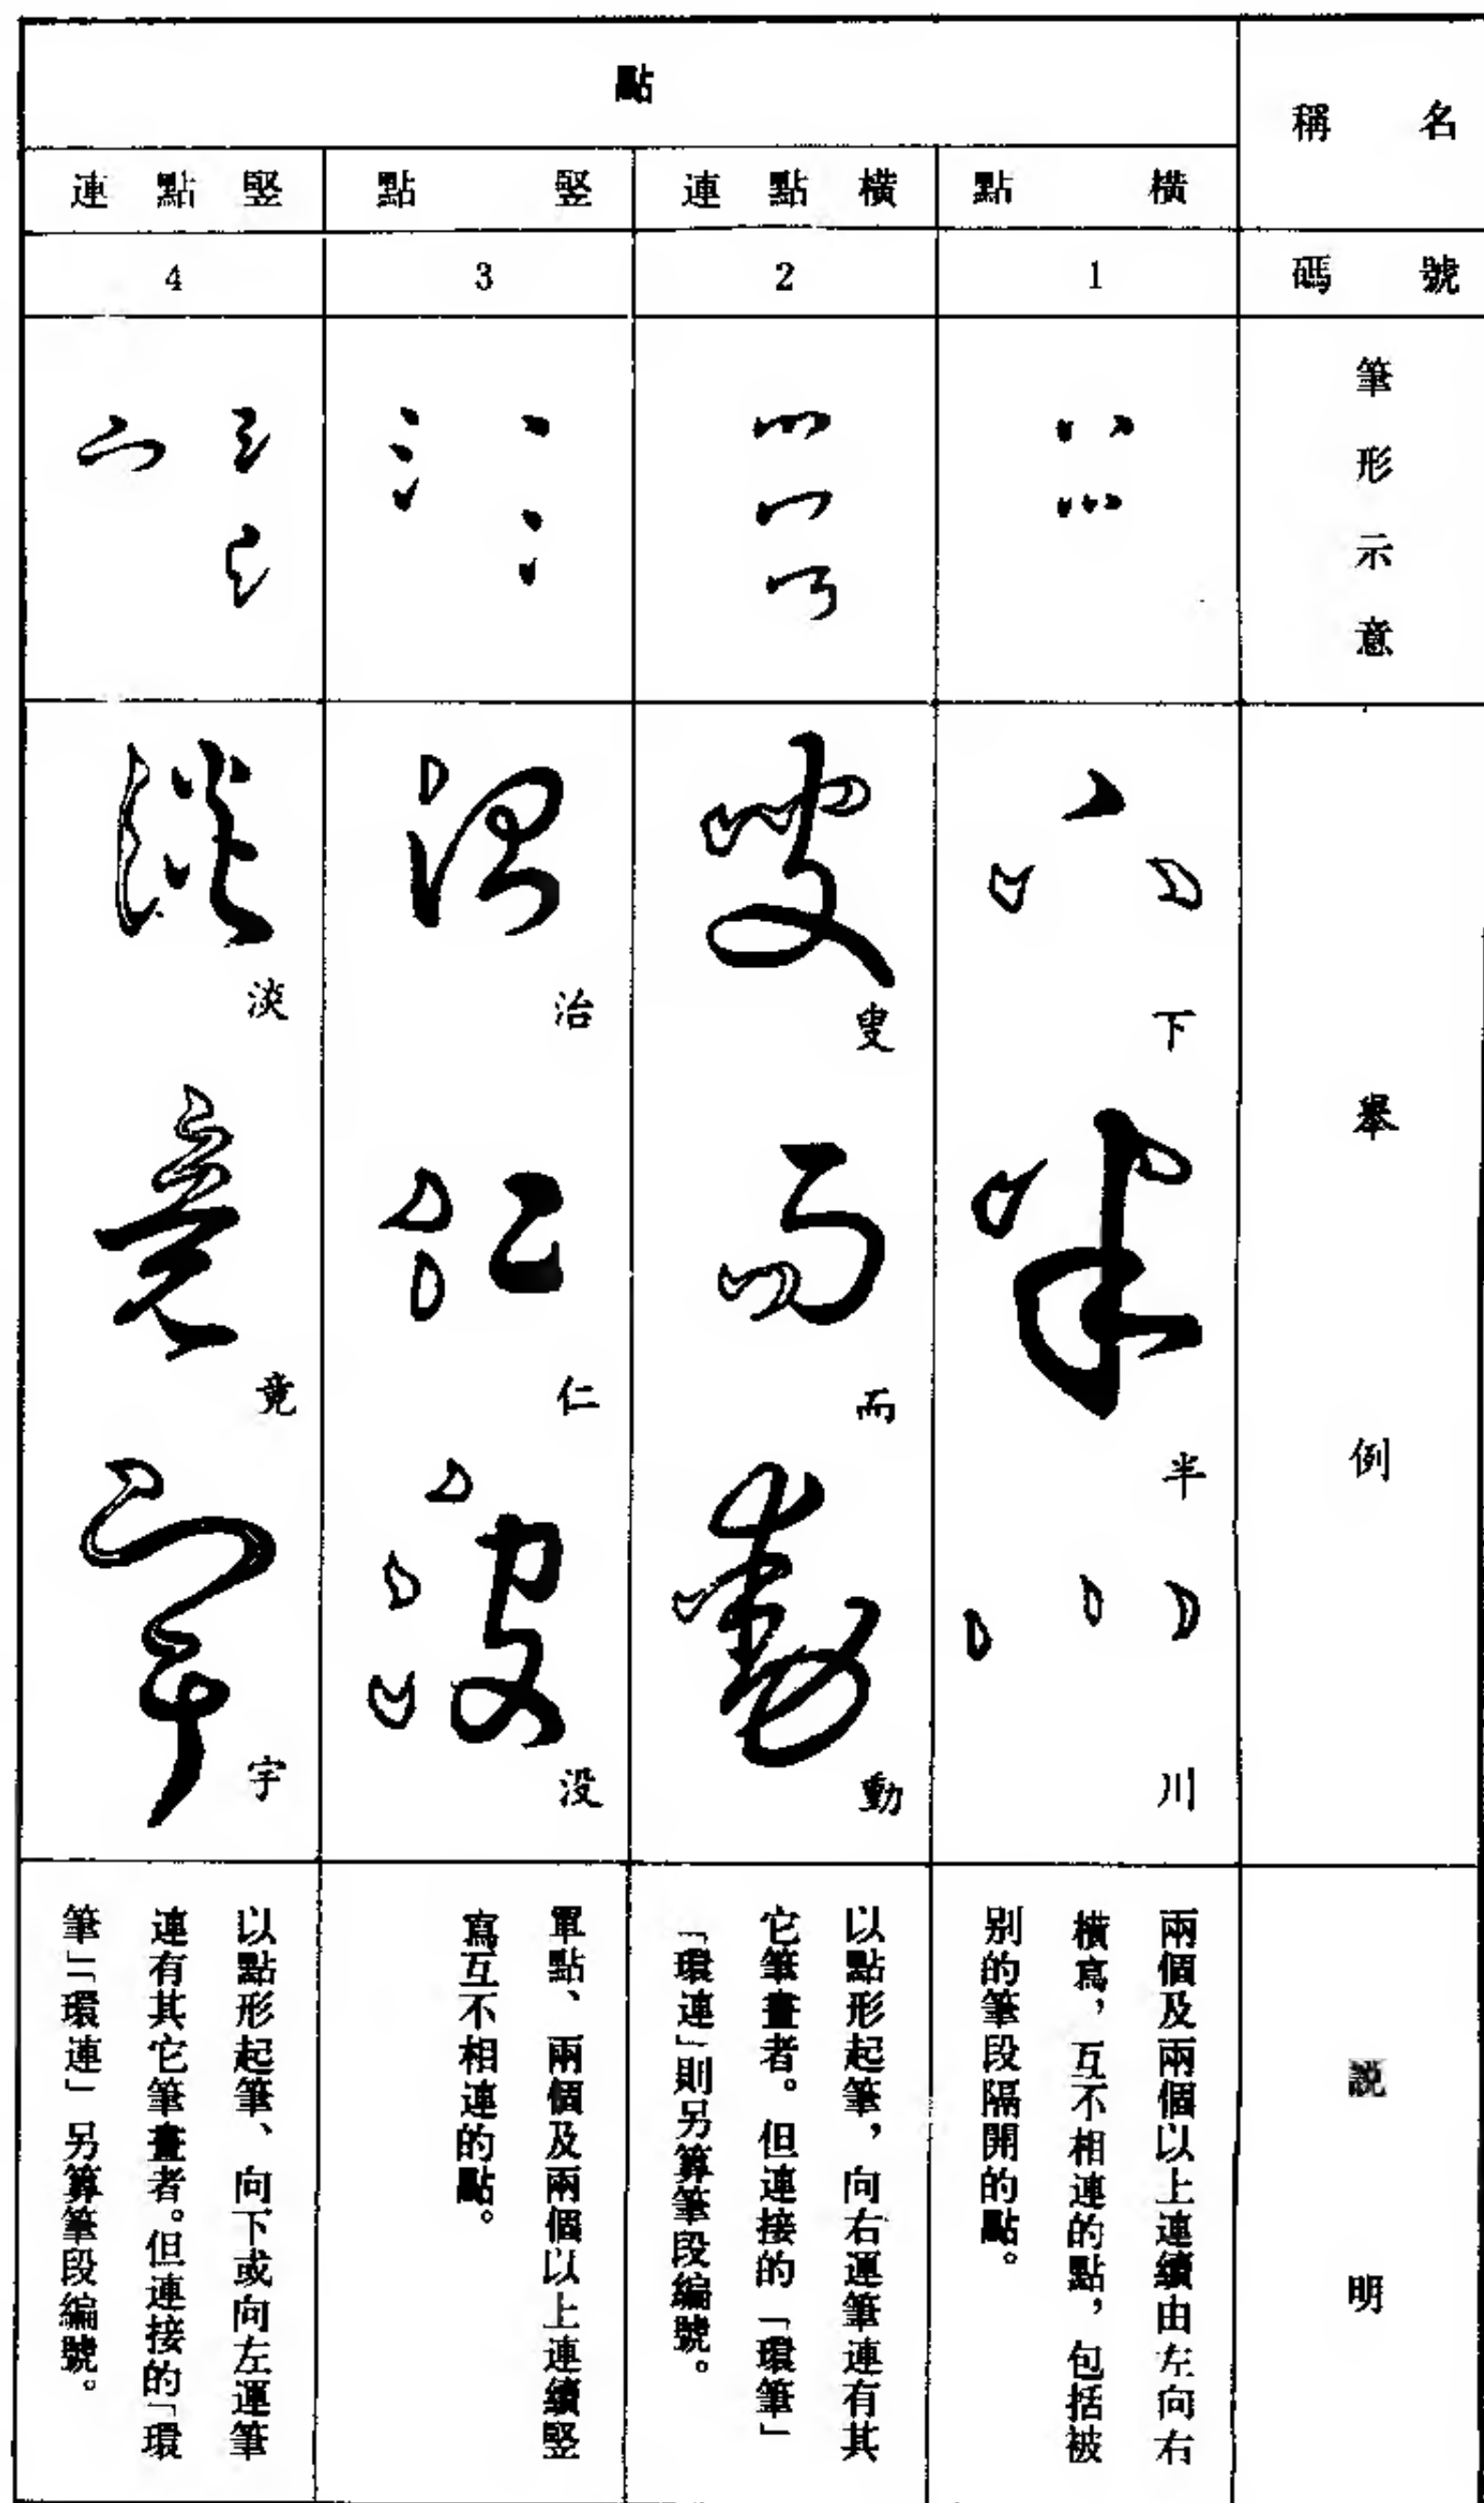 名稱
點
橫點
橫點連
竪點
竪點連
號碼
1
2
3
4
筆形示意
舉例
下
半
川
叟
而
動
治
仁
没
淡
竟
宇
説明
兩個及兩個以上連續由左向右
橫寫，互不相連的點，包括被
别的筆段隔開的點。
以點形起筆，向右運筆連有其
它筆畫者。但連接的「環筆」
「環連」則另算筆段編號。
單點、兩個及兩個以上連續竪
寫互不相連的點。
以點形起筆、向下或向左運筆
連有其它筆畫者。但連接的「環
筆」「環連」另算筆段編號。